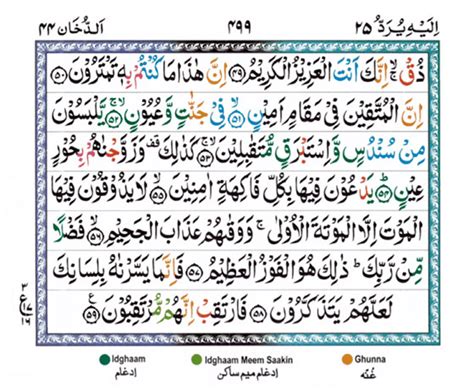 اِلَيْهِ يُرَدُّ ٢٥ ٤٩٩ اَلدُّخَان ٤٤
ذُقْ ۙۚ اِنَّكَ اَنْتَ الْعَزِيْزُ الْكَرِيْمُ ﴿٤٩﴾ اِنَّ هٰذَا مَا كُنْتُمْ بِهٖ تَمْتَرُوْنَ ﴿٥٠﴾
اِنَّ الْمُتَّقِيْنَ فِىْ مَقَامٍ اَمِيْنٍ ﴿٥١﴾ فِىْ جَنّٰتٍ وَّعُيُوْنٍ ﴿٥٢﴾ يَّلْبَسُوْنَ
مِنْ سُنْدُسٍ وَّاِسْتَبْرَقٍ مُّتَقٰبِلِيْنَ ﴿٥٣﴾ كَذٰلِكَ ۣ وَزَوَّجْنٰهُمْ بِحُوْرٍ
عِيْنٍ ﴿٥٤﴾ يَدْعُوْنَ فِيْهَا بِكُلِّ فَاكِهَةٍ اٰمِنِيْنَ ﴿٥٥﴾ لَا يَذُوْقُوْنَ فِيْهَا
الْمَوْتَ اِلَّا الْمَوْتَةَ الْاُوْلٰى ۚ وَوَقٰىهُمْ عَذَابَ الْجَحِيْمِ ﴿٥٦﴾ فَضْلًا
مِّنْ رَّبِّكَ ؕ ذٰلِكَ هُوَ الْفَوْزُ الْعَظِيْمُ ﴿٥٧﴾ فَاِنَّمَا يَسَّرْنٰهُ بِلِسَانِكَ
لَعَلَّهُمْ يَتَذَكَّرُوْنَ ﴿٥٨﴾ فَارْتَقِبْ اِنَّهُمْ مُّرْتَقِبُوْنَ ﴿٥٩﴾
Idghaam Idghaam Meem Saakin Ghunna
اِدغام اِدغام میم ساکن غُنّه